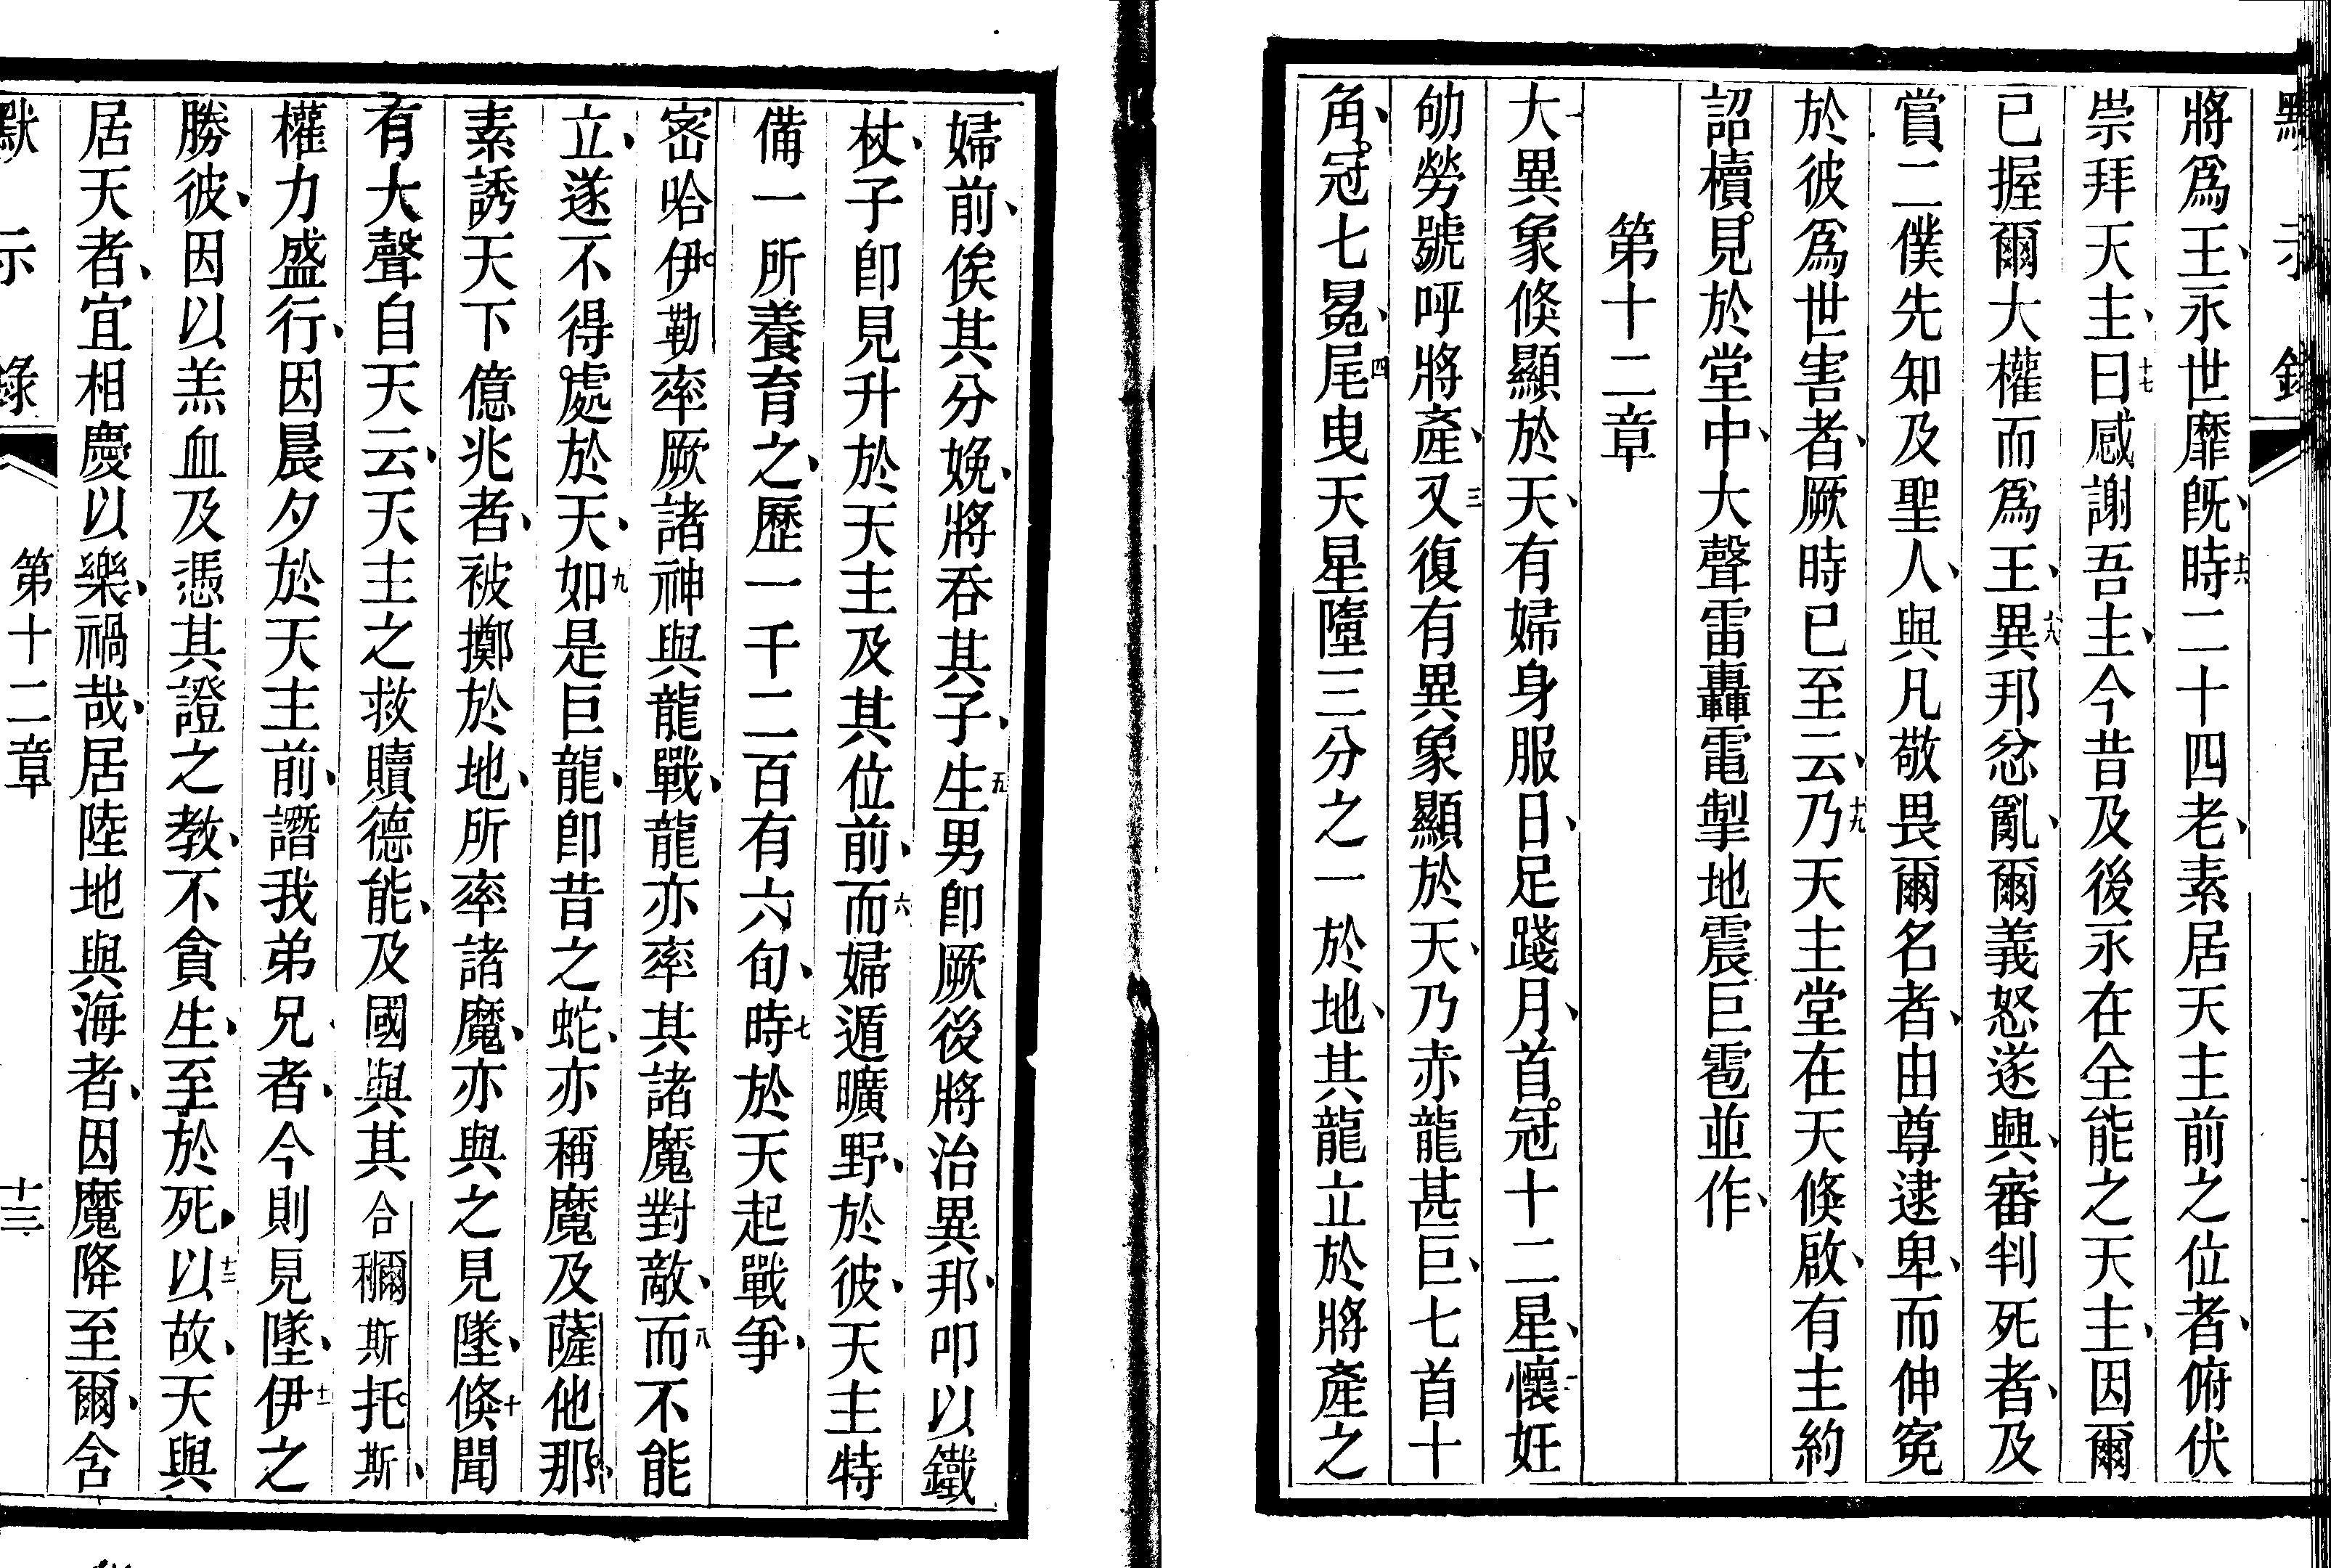 默示錄
將爲王、永世靡旣、十六時二十四老、素居天主前之位者、俯伏
崇拜天主、十七曰感謝吾主、今昔及後永在全能之天主、因爾
已握爾大權而爲王、十八異邦忿亂、爾義怒遂興、審判死者、及
賞二僕先知及聖人、與凡敬畏爾名者、由尊逮卑、而伸寃
於彼爲世害者、厥時已至云、十九乃天主堂在天倏啟、有主約
詔櫝。見於堂中、大聲雷轟電掣地震巨雹並作、
第十二章
一大異象倏顯於天、有婦身服日、足踐月、首。冠十二星、二懷妊
劬勞號呼將產、三又復有異象顯於天、乃赤龍甚巨、七首十
角、。冠七冕、四尾曳天星隨三分之一於地、其龍立於將產之
婦前、俟其分娩、將吞其子、五生男卽厥後將治異邦、叩以鐵
杖、子卽見升於天主及其位前、六而婦遁曠野、於彼、天主特
備一所養育之、歷一千二百有六旬、七時於天起戰爭、
宻哈伊勒率厥諸神與龍戰、龍亦率其諸魔對敵、八而不能
立、遂不得。處於天、九如是巨龍、卽昔之蛇、亦稱魔及薩他那、
素誘天下億兆者、被擲於地、所率諸魔、亦與之見墜、十倏聞
有大聲自天云、天主之救贖德能、及國與其合穪斯托斯、
權力盛行、因晨夕於天主前、譖我弟兄者、今則見墜、十一伊之
勝彼、因以羔血及憑其證之教、不貪生、至於死、十二以故、天與
居天者、宜相慶以樂、禍哉、居陸地與海者、因魔降至爾、含
默示錄
第十二章
十三